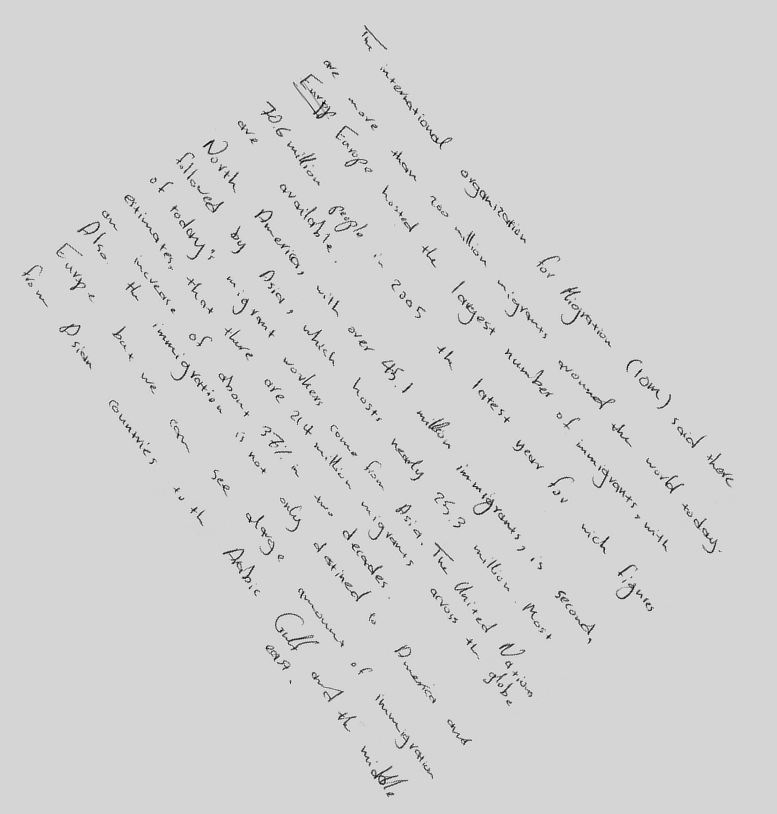 The international organization for Migration (IOM) said there
are more than 200 million migrants around the world today.
Europe hosted the largest number of immigrants, with
70.6 million people in 2005, the latest year for wich figures
are available.
North America, with over 45.1 million immigrants, is second,
followed by Asia, which hosts nearly 25.3 million. Most
of today's migrant workers come from Asia. The United Nations
estimates that there are 214 million migrants across the globe
an increase of about 37% in two decades.
Also the immigration is not only dasined to America and
Europe but we can see alarge amount of immigration
from Asian countries to the Arabic Gulf and the middle
east.